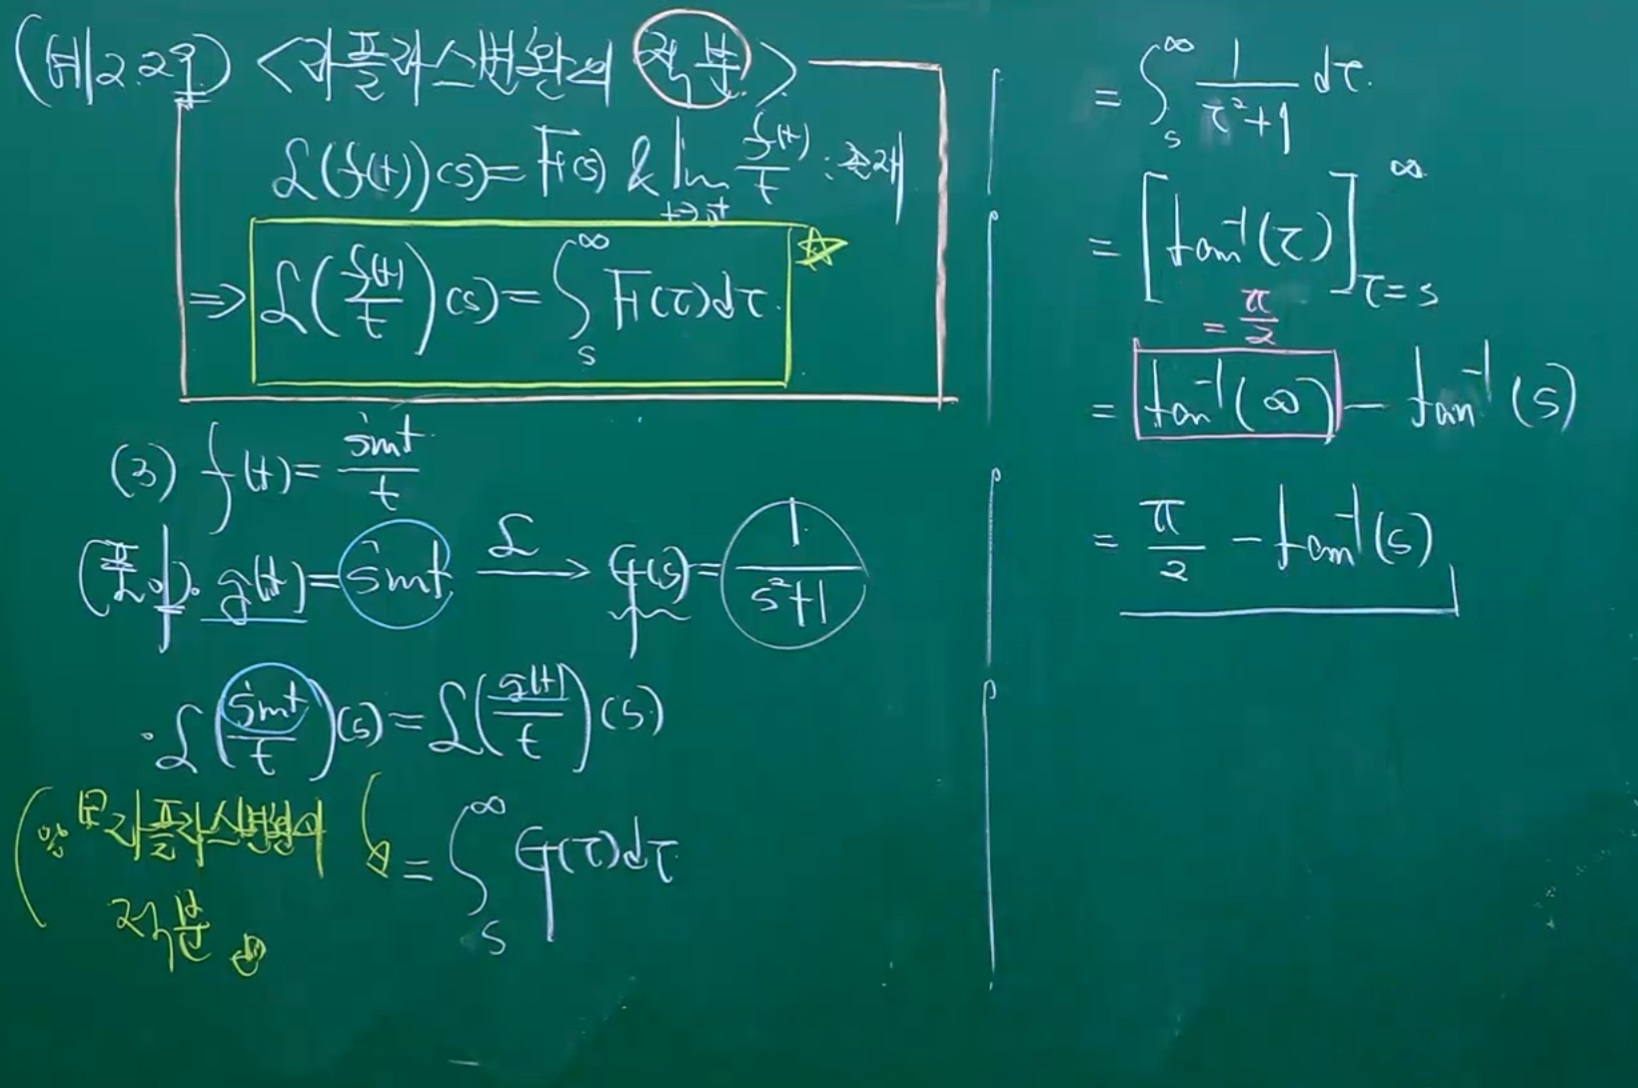 (예 2.29) <라플라스변환의 적분>
ℒ(f(t))(s) = F(s) & lim_{t→0⁺} f(t)/t : 존재
⇒ ℒ(f(t)/t)(s) = ∫_s^∞ F(τ)dτ. ☆
(3) f(t) = sint/t
(풀이). g(t) = sint ℒ→ G(s) = 1/(s²+1)
· ℒ(sint/t)(s) = ℒ(g(t)/t)(s)
라플라스변환의
적분
= ∫_s^∞ G(τ)dτ
= ∫_s^∞ 1/(τ²+1) dτ.
= [tan⁻¹(τ)]_{τ=s}^∞
= π/2
= tan⁻¹(∞) − tan⁻¹(s)
= π/2 − tan⁻¹(s)